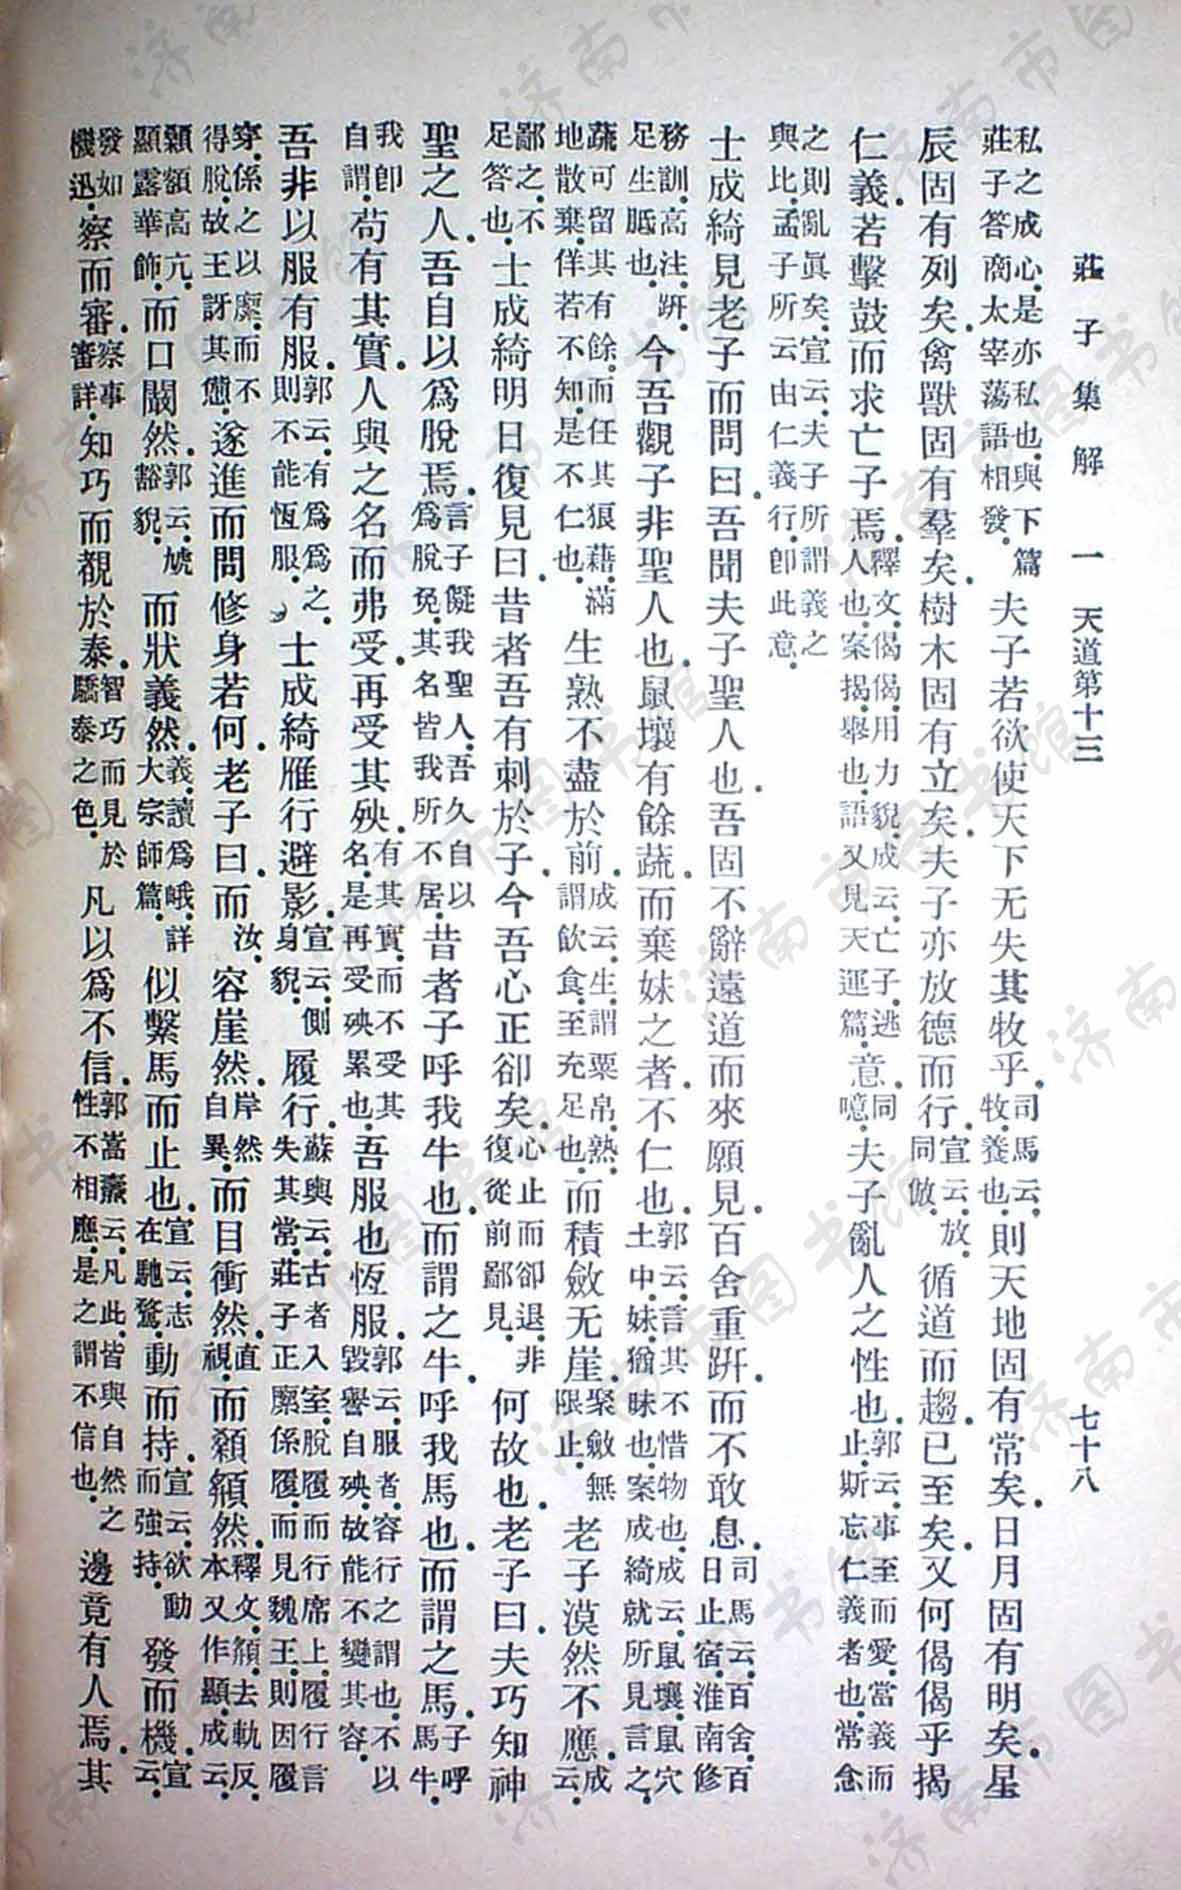 莊子集解　一　天道第十三　七十八
私之成心.是亦私也.與下篇莊子答商太宰蕩語相發.夫子若欲使天下无失其牧乎.司馬云.牧.養也.則天地固有常矣.日月固有明矣.星
辰固有列矣.禽獸固有羣矣.樹木固有立矣.夫子亦放德而行.宣云.放.同倣.循道而趨.已至矣.又何偈偈乎揭
仁義.若擊鼓而求亡子焉.釋文.偈偈.用力貌.成云.亡子.逃人也.案揭.舉也.語又見天運篇.意.同噫.夫子亂人之性也.郭云.事至而愛.當義而止.斯忘仁義者也.常念
之則亂眞矣.宣云.夫子所謂義之與比.孟子所云由仁義行.卽此意.
士成綺見老子而問曰.吾聞夫子聖人也.吾固不辭遠道而來願見.百舍重趼.而不敢息.司馬云.百舍.百日止宿.淮南修
務訓.高注.趼.足生胝也.今吾觀子非聖人也.鼠壤有餘蔬.而棄妹之者.不仁也.郭云.言其不惜物也.成云.鼠壤.鼠穴土中.妹猶昧也.案成綺就所見言之.
蔬可留其有餘.而任其狼藉.滿地散棄.佯若不知.是不仁也.生熟不盡於前.成云.生.謂粟帛.熟.謂飲食.至充足也.而積斂无崖.聚斂無限止.老子漠然不應.成云.
鄙之.不足答也.士成綺明日復見曰.昔者吾有刺於子.今吾心正卻矣.心止而卻退.非復從前鄙見.何故也.老子曰.夫巧知神
聖之人.吾自以爲脫焉.言子儗我聖人.吾久自以爲脫免.其名皆我所不居.昔者子呼我牛也.而謂之牛.呼我馬也.而謂之馬.子呼馬牛.
我卽自謂.苟有其實.人與之名而弗受.再受其殃.有其實.而不受其名.是再受殃累也.吾服也恆服.郭云.服者.容行之謂也.不以毀譽自殃.故能不變其容.
吾非以服有服.郭云.有爲爲之.則不能恆服.士成綺雁行避影.宣云.側身貌.履行.蘇輿云.古者入室.脫履而行席上.履行.言失其常.莊子正緳係履而見魏王.則因履
穿.係之以緳.而不得脫.故王訝其憊.遂進而問修身若何.老子曰.而汝.容崖然.岸然自異.而目衝然.直視.而顙頯然.釋文.頯.去軌反.本又作顯.成云.
顙額高亢.顯露華飾.而口闞然.郭云.虓豁貌.而狀義然.義.讀爲峨.詳大宗師篇.似繫馬而止也.宣云.志在馳騖.動而持.宣云.欲動而強持.發而機.宣云.
發如機迅.察而審.察事審詳.知巧而覩於泰.智巧而見於驕泰之色.凡以爲不信.郭嵩燾云.凡此.皆與自然之性不相應.是之謂不信也.邊竟有人焉.其